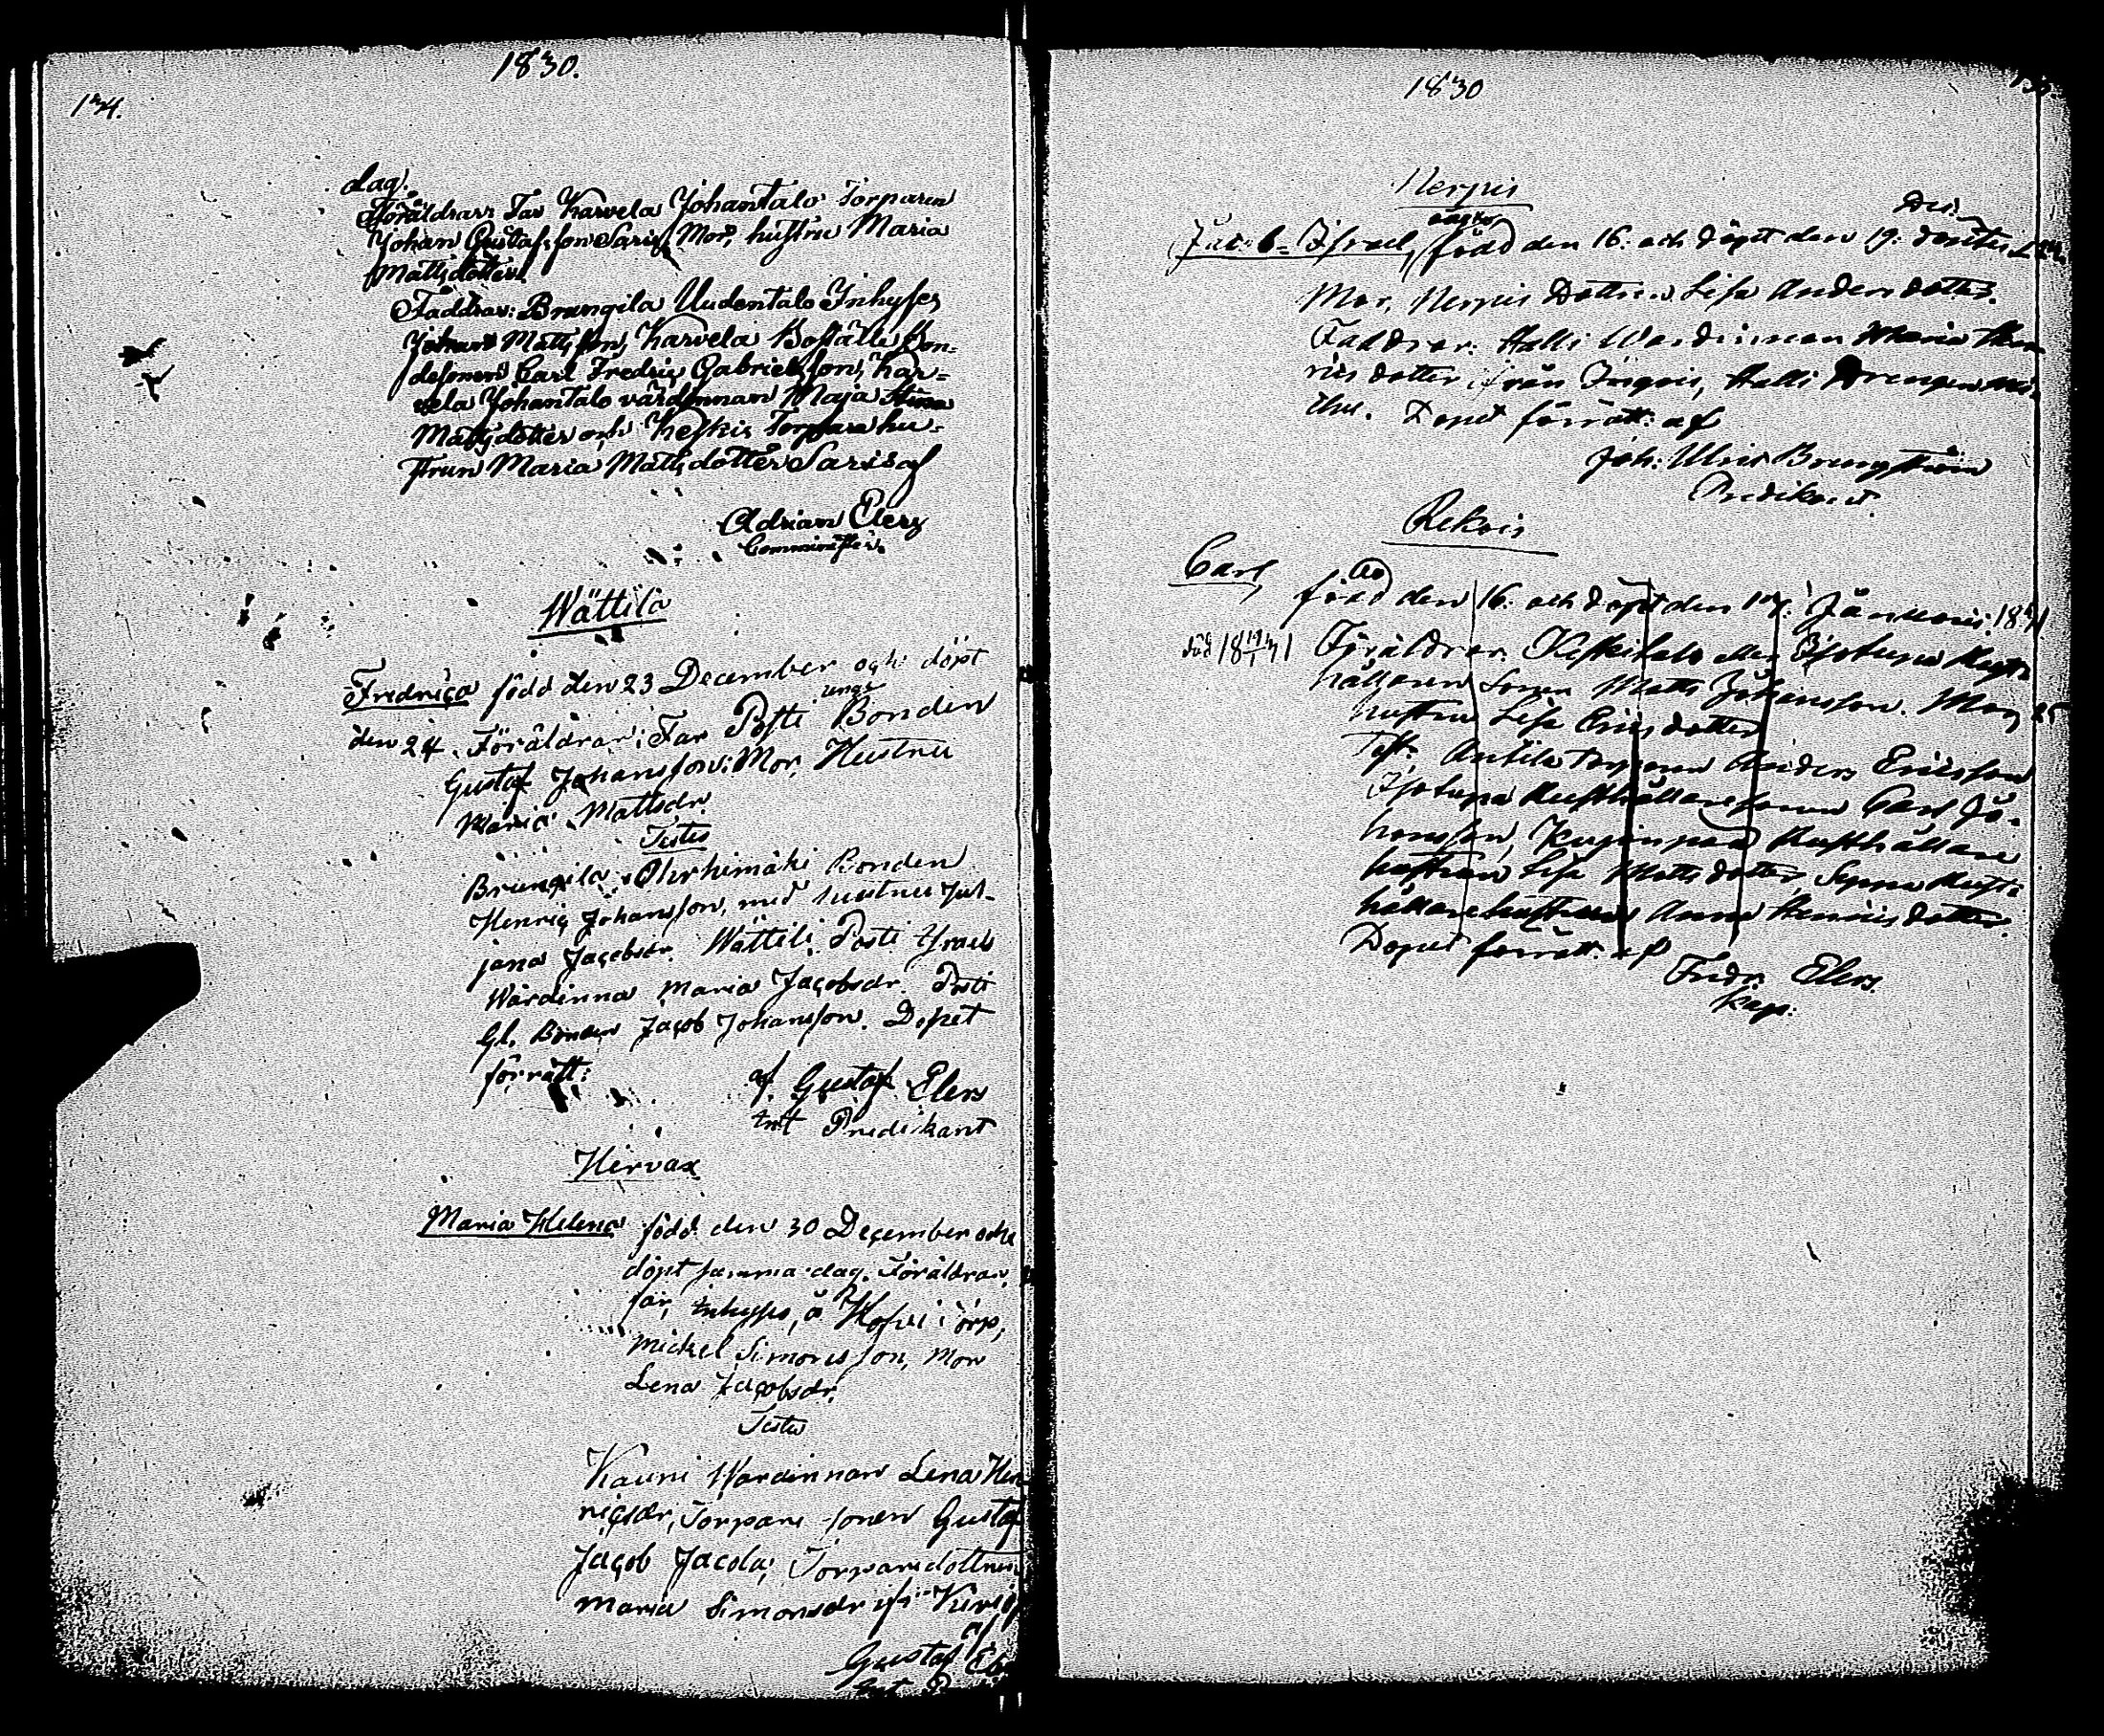 1830.
174.
dag.
Föräldrar: Far Karvela Johantalo Torparen
Johan Gustafsson Saris, Mor, hustru Maria
Mattsdotter.
Faddrar: Brunnila Uudentalo Inhyses
Johan Mattsson, Karvela Boställs Bon-
desonen Carl Fredric Gabrielsson, Kar-
vela Johantalo värdinnan Maja Stina
Mattsdotter och Keskis Torpare hu-
strun Maria Mattsdotter Saris af
Adrian Elers
Comminister.
Wättilä
Fredrica född den 23 December och döpt
den 24. Föräldrar: Far Posti unge Bonden
Gustaf Johansson: Mor, Hustru
Maria Mattsdr.
Testes
Brunnila Bonden
Henric Johansson, med hustru Jul-
jana Jacobsdr. Wättilä Posti
Wärdinna Maria Jacobsdr. Posti
Gl. Bonden Jacob Johansson. Dopet
förrätt:
af Gustaf Elers
Predikant
Hirvax
Maria Helena född den 30 December och
döpt samma dag. Föräldrar,
far, Inhyses, å torp,
Mickel Simonsson, Mor
Lena Jacobsdr.
Testes
Kauni Wärdinnan Lena Hen-
ricsdr, Torpare sonen Gustaf
Jacob Jacola, Torparedottren
Maria Simonsdr
af
Gustaf
1830
Nerpis
Jacob Israel, född den 16. och döpt den 19.
Mor, Nerpis Dottren Lisa Andersdotter.
Faddrar: Halli Wärdinnan Maria Hen-
ricsdotter från Halli Drengen
Dopet förrätt: af
Joh: Ulric
Predikant.
Rekois
Carl,
född den 16. och döpt den 17. Januari. 1831
död
Föräldrar: Isotupa Rust-
hållaren Sonen Matts Johansson. Mor,
hustru Lisa Ericsdotter
Test: Anttila Torparen Anders Ericsson
Isotupa Rusthållaresonen Carl Jo-
hansson, Rusthållare
hustrun Lisa Mattsdotter, Rust-
hållarehustrun Anna Henricsdotter.
Dopet förrätt. af
Fredr. Elers.
Kap: